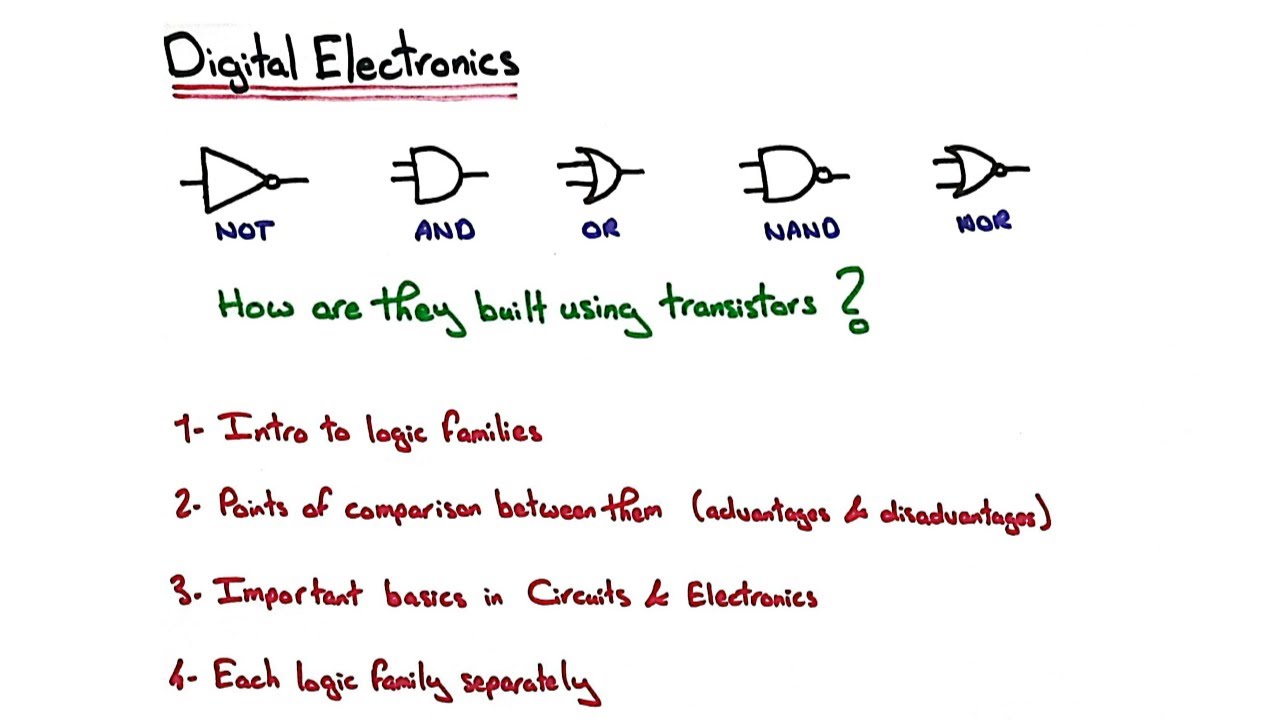 Digital Electronics
NOT AND OR NAND NOR
How are they built using transistors ?
1- Intro to logic families
2- Points of comparison between them (advantages & disadvantages)
3- Important basics in Circuits & Electronics
4- Each logic family separately